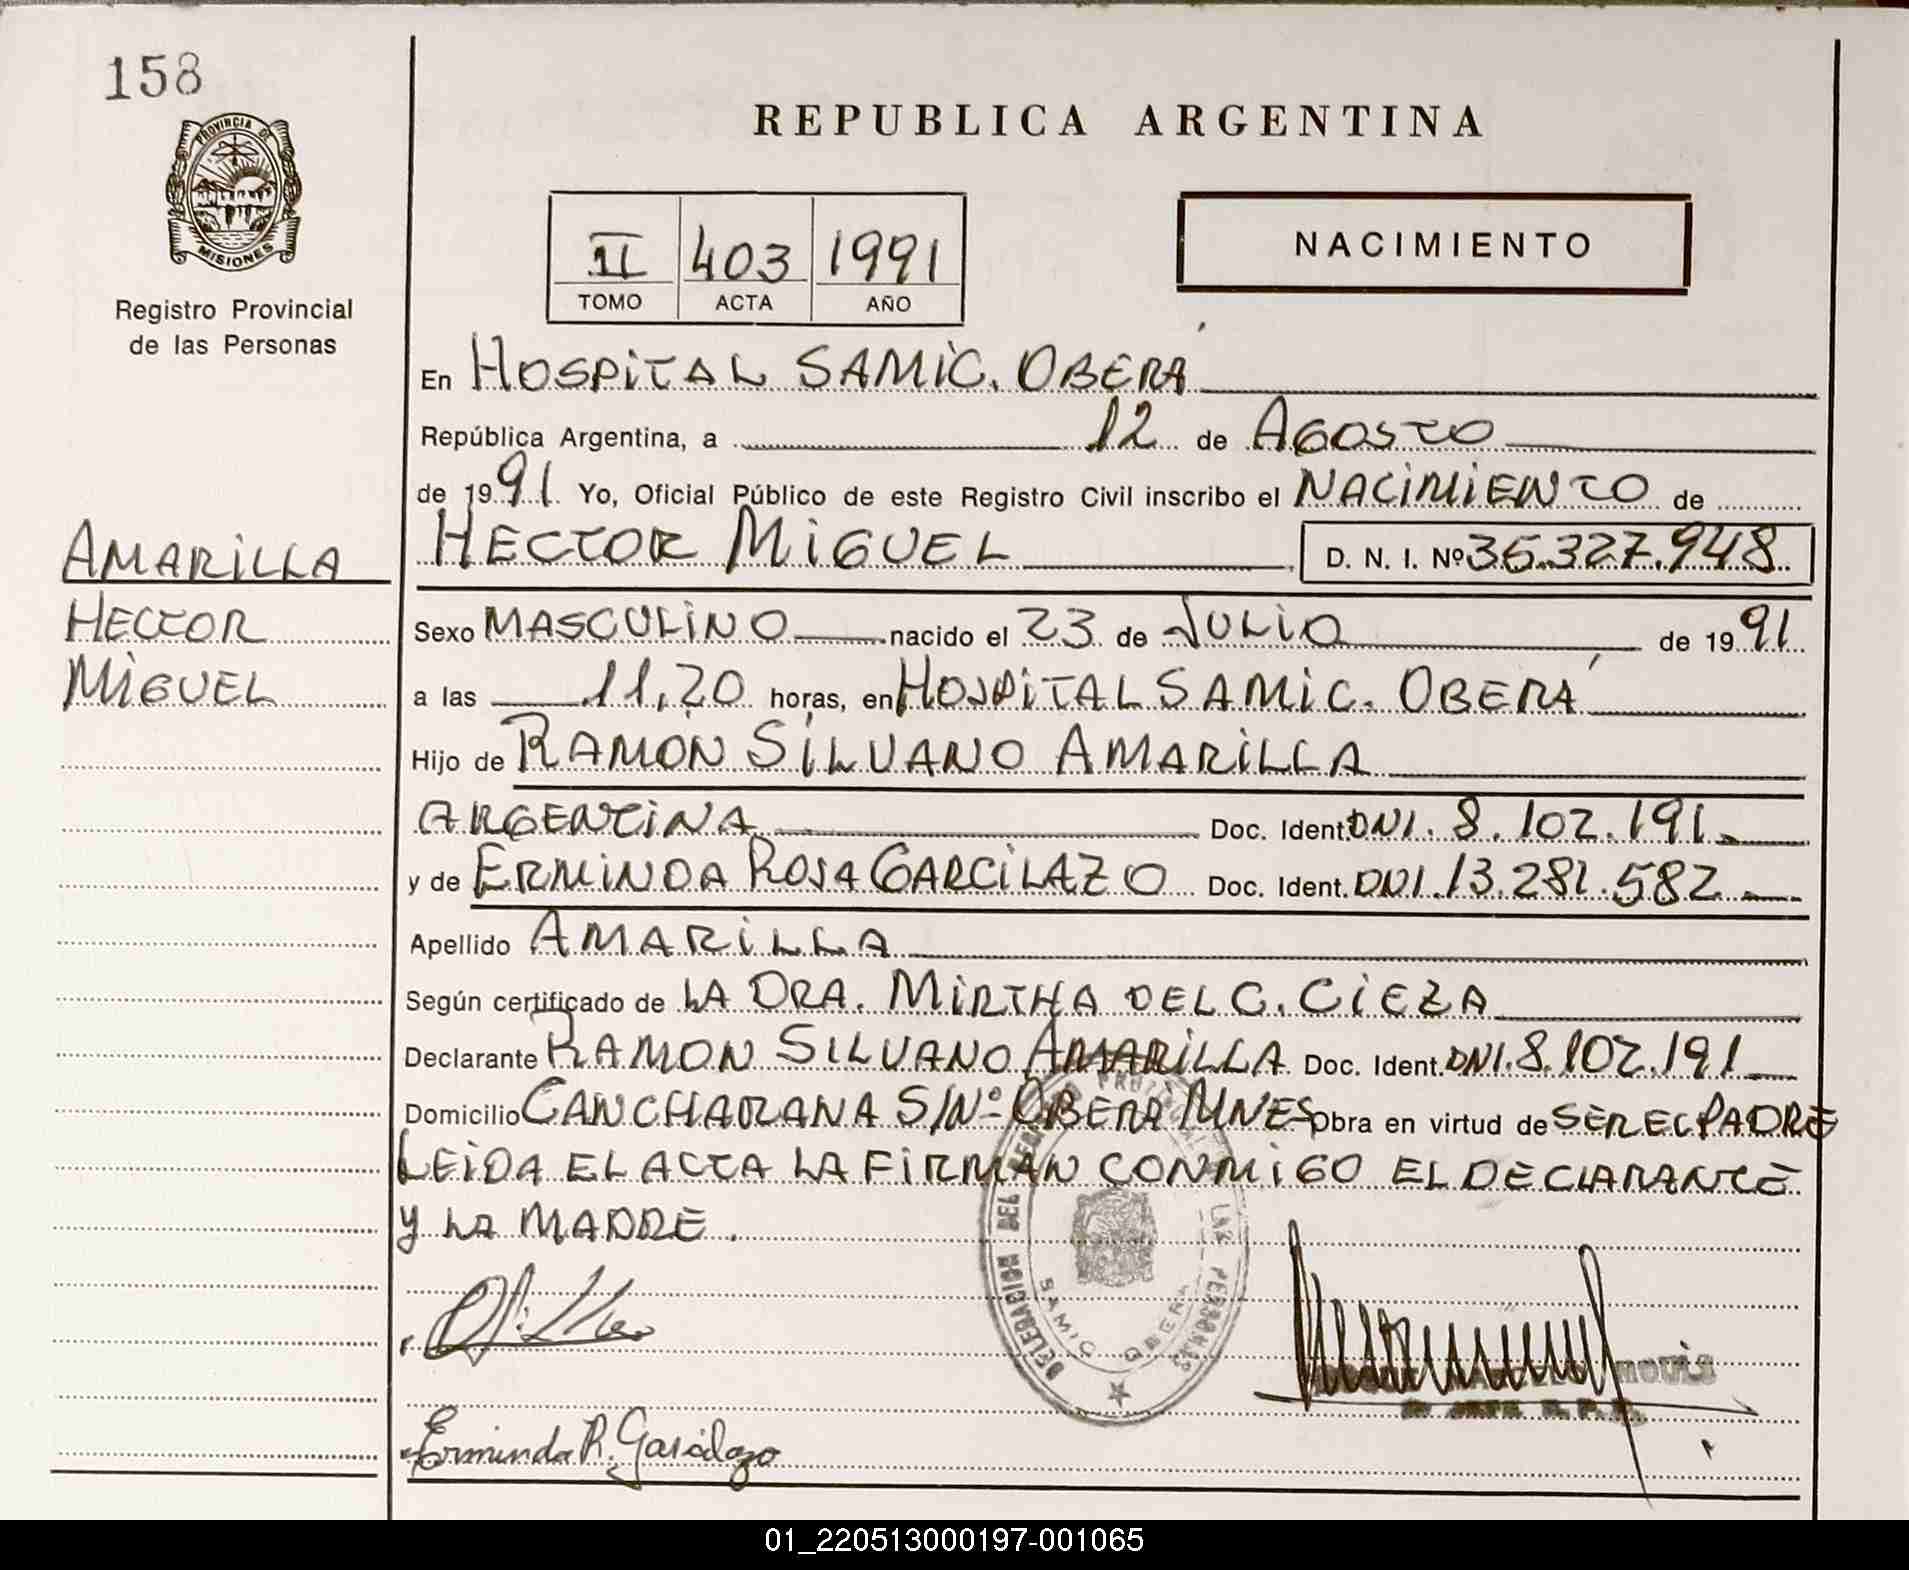 158
PROVINCIA DE
MISIONES
Registro Provincial
de las Personas
AMARILLA
HECTOR
MIGUEL
REPUBLICA ARGENTINA
II 403 1991
TOMO ACTA AÑO
NACIMIENTO
En HOSPITAL SAMIC. OBERÁ
República Argentina, a 12 de AGOSTO
de 1991 Yo, Oficial Público de este Registro Civil inscribo el NACIMIENTO de
HECTOR MIGUEL D. N. I. Nº 36.327.948
Sexo MASCULINO nacido el 23 de JULIO de 1991
a las 11,20 horas, en HOSPITAL SAMIC. OBERÁ
Hijo de RAMÓN SILVANO AMARILLA
ARGENTINA Doc. Ident. DNI. 8.102.191
y de ERMINDA ROSA GARCILAZO Doc. Ident. DNI. 13.282.582
Apellido AMARILLA
Según certificado de LA DRA. MIRTHA DEL C. CIEZA
Declarante RAMON SILVANO AMARILLA Doc. Ident. DNI. 8.102.191
Domicilio CANCHARANA S/Nº OBERA MNES Obra en virtud de SER EL PADRE
LEIDA EL ACTA LA FIRMAN CONMIGO EL DECLARANTE
Y LA MADRE.
DELEGACION DEL LAS PERSONAS
SAMIC OBERA
Erminda R. Garcilazo
01_220513000197-001065